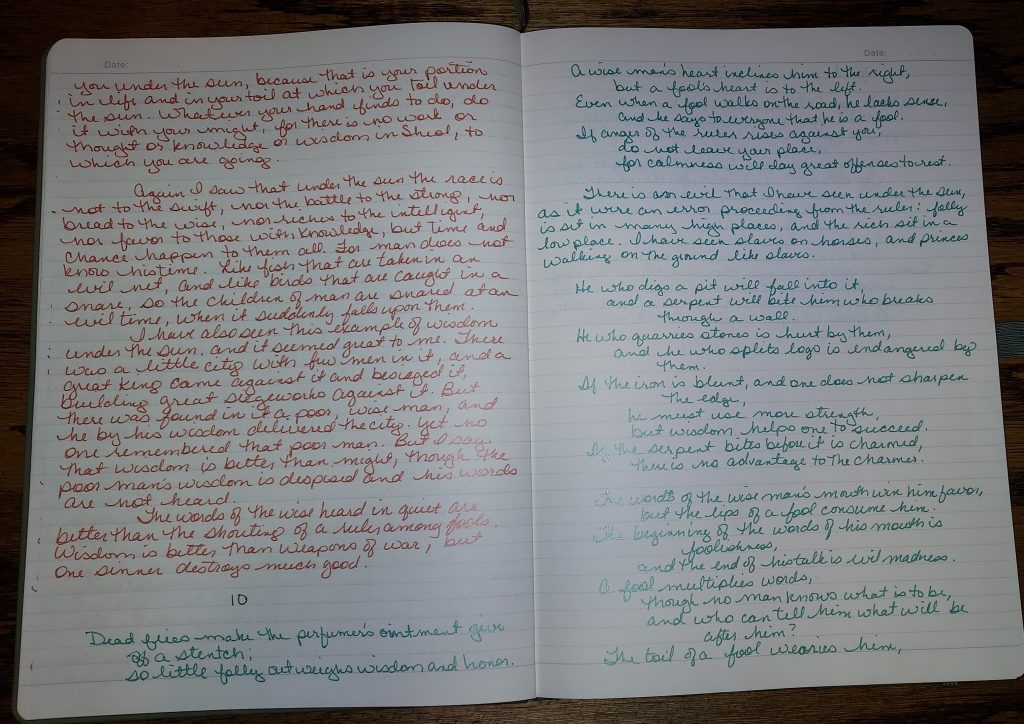 Date:
you under the sun, because that is your portion
in life and in your toil at which you toil under
the sun. Whatever your hand finds to do, do
it with your might, for there is no work or
thought or knowledge or wisdom in Sheol, to
which you are going.
Again I saw that under the sun the race is
not to the swift, nor the battle to the strong, nor
bread to the wise, nor riches to the intelligent,
nor favor to those with knowledge, but time and
chance happen to them all. For man does not
know his time. Like fish that are taken in an
evil net, and like birds that are caught in a
snare, so the children of man are snared at an
evil time, when it suddenly falls upon them.
I have also seen this example of wisdom
under the sun, and it seemed great to me. There
was a little city with few men in it, and a
great king came against it and besieged it,
building great siegeworks against it. But
there was found in it a poor, wise man, and
he by his wisdom delivered the city. Yet no
one remembered that poor man. But I say
that wisdom is better than might, though the
poor man's wisdom is despised and his words
are not heard.
The words of the wise heard in quiet are
better than the shouting of a ruler among fools.
Wisdom is better than weapons of war, but
one sinner destroys much good.
10
Dead flies make the perfumer's ointment give
off a stench;
so little folly outweighs wisdom and honor.
Date:
A wise man's heart inclines him to the right,
but a fool's heart is to the left.
Even when a fool walks on the road, he lacks sense,
and he says to everyone that he is a fool.
If anger of the ruler rises against you,
do not leave your place,
for calmness will lay great offenses to rest.
There is an evil that I have seen under the sun,
as it were an error proceeding from the ruler: folly
is sit in many high places, and the rich sit in a
low place. I have seen slaves on horses, and princes
walking on the ground like slaves.
He who digs a pit will fall into it,
and a serpent will bite him who breaks
through a wall.
He who quarries stones is hurt by them,
and he who splits logs is endangered by
them.
If the iron is blunt, and one does not sharpen
the edge,
he must use more strength,
but wisdom helps one to succeed.
If the serpent bites before it is charmed,
there is no advantage to the charmer.
The words of the wise man's mouth win him favor,
but the lips of a fool consume him.
The beginning of the words of his mouth is
foolishness,
and the end of his talk is evil madness.
A fool multiplies words,
though no man knows what is to be,
and who can tell him what will be
after him?
The toil of a fool wearies him,